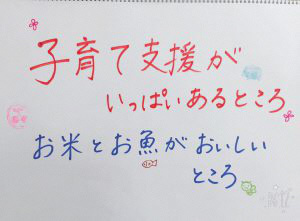 子育て支援が
いっぱいあるところ
お米とお魚がおいしい
ところ